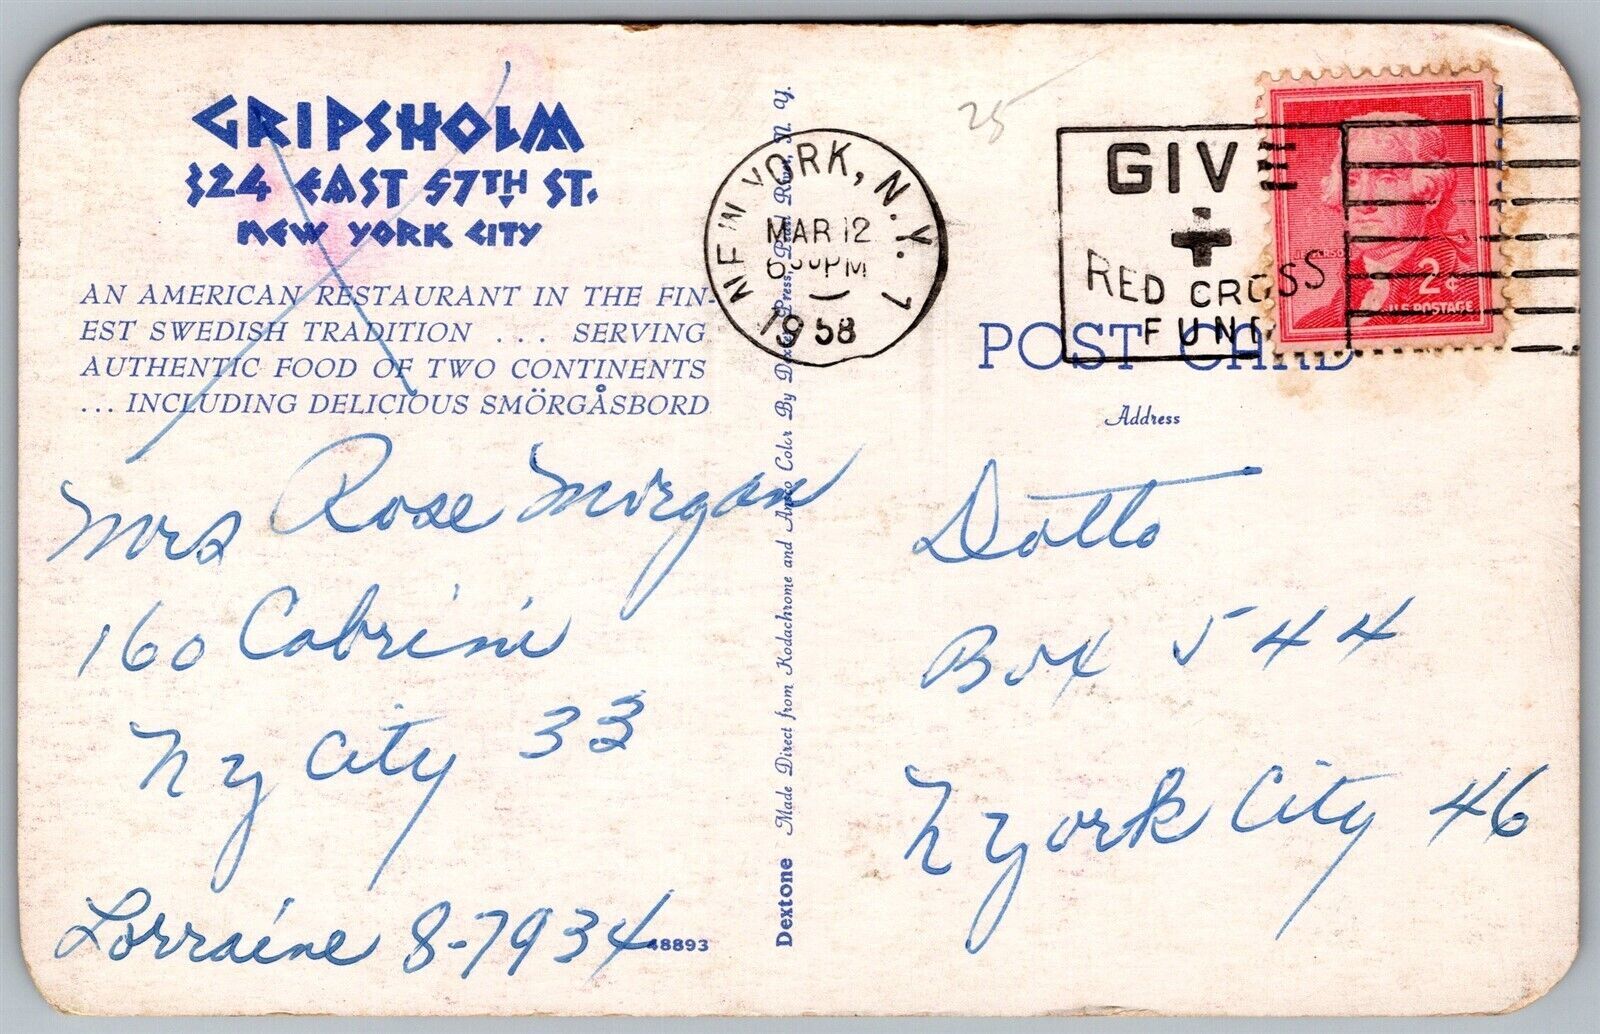 GRIPSHOLM
324 EAST 57TH ST.
NEW YORK CITY
AN AMERICAN RESTAURANT IN THE FIN-
EST SWEDISH TRADITION ... SERVING
AUTHENTIC FOOD OF TWO CONTINENTS
... INCLUDING DELICIOUS SMÖRGÅSBORD
Mrs Rose Morgan
160 Cabrini
N y City 33
Lorraine 8-7934
48893
Dextone Made Direct from Kodachrome and Ansco Color By Dexter Press, Pearl River, N. Y.
25
NEW YORK, N.Y. 1
MAR 12
6 PM
1958
GIVE
RED CROSS
FUND
JEFFERSON
2¢
U.S. POSTAGE
POST CARD
Address
Dotto
Box 544
N york City 46